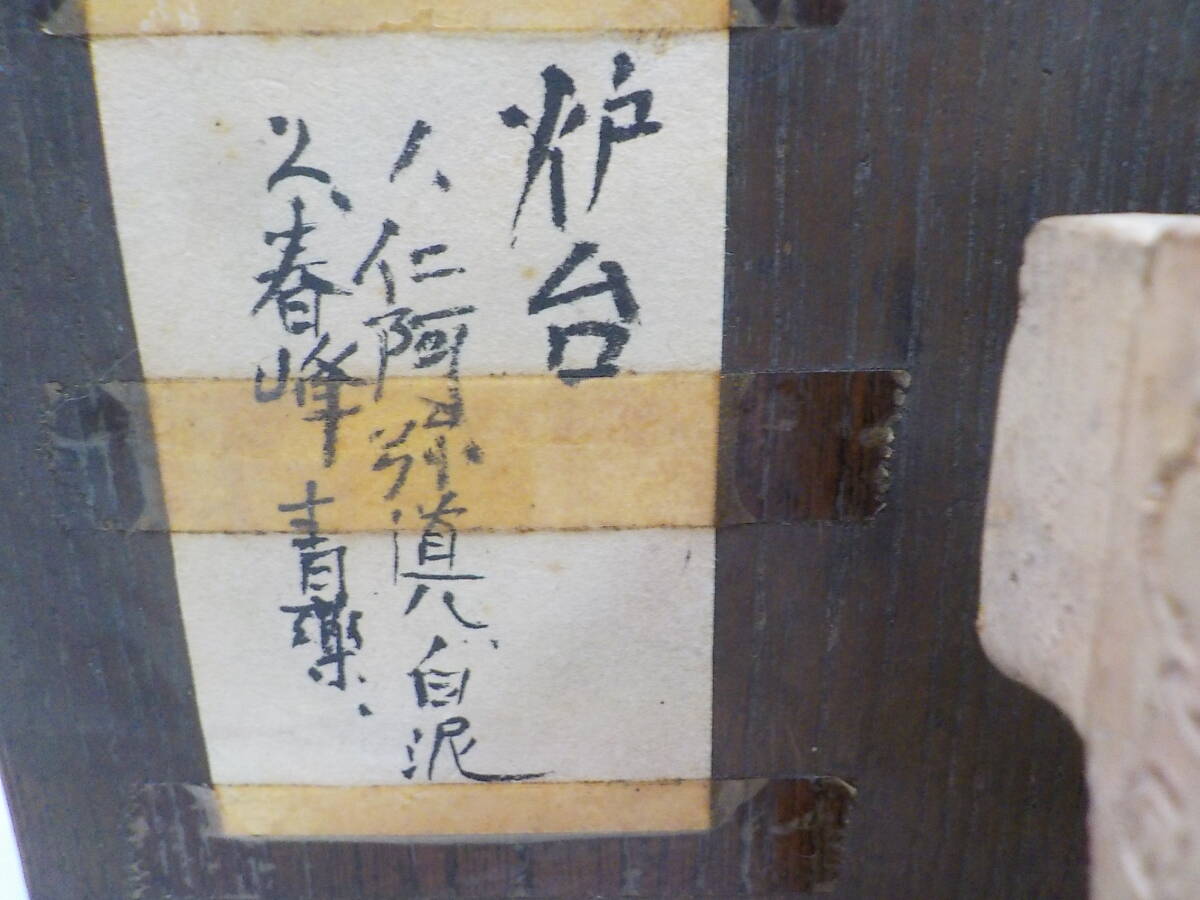 炉台
1、仁阿弥道八、白泥
2、春峰 青薬、